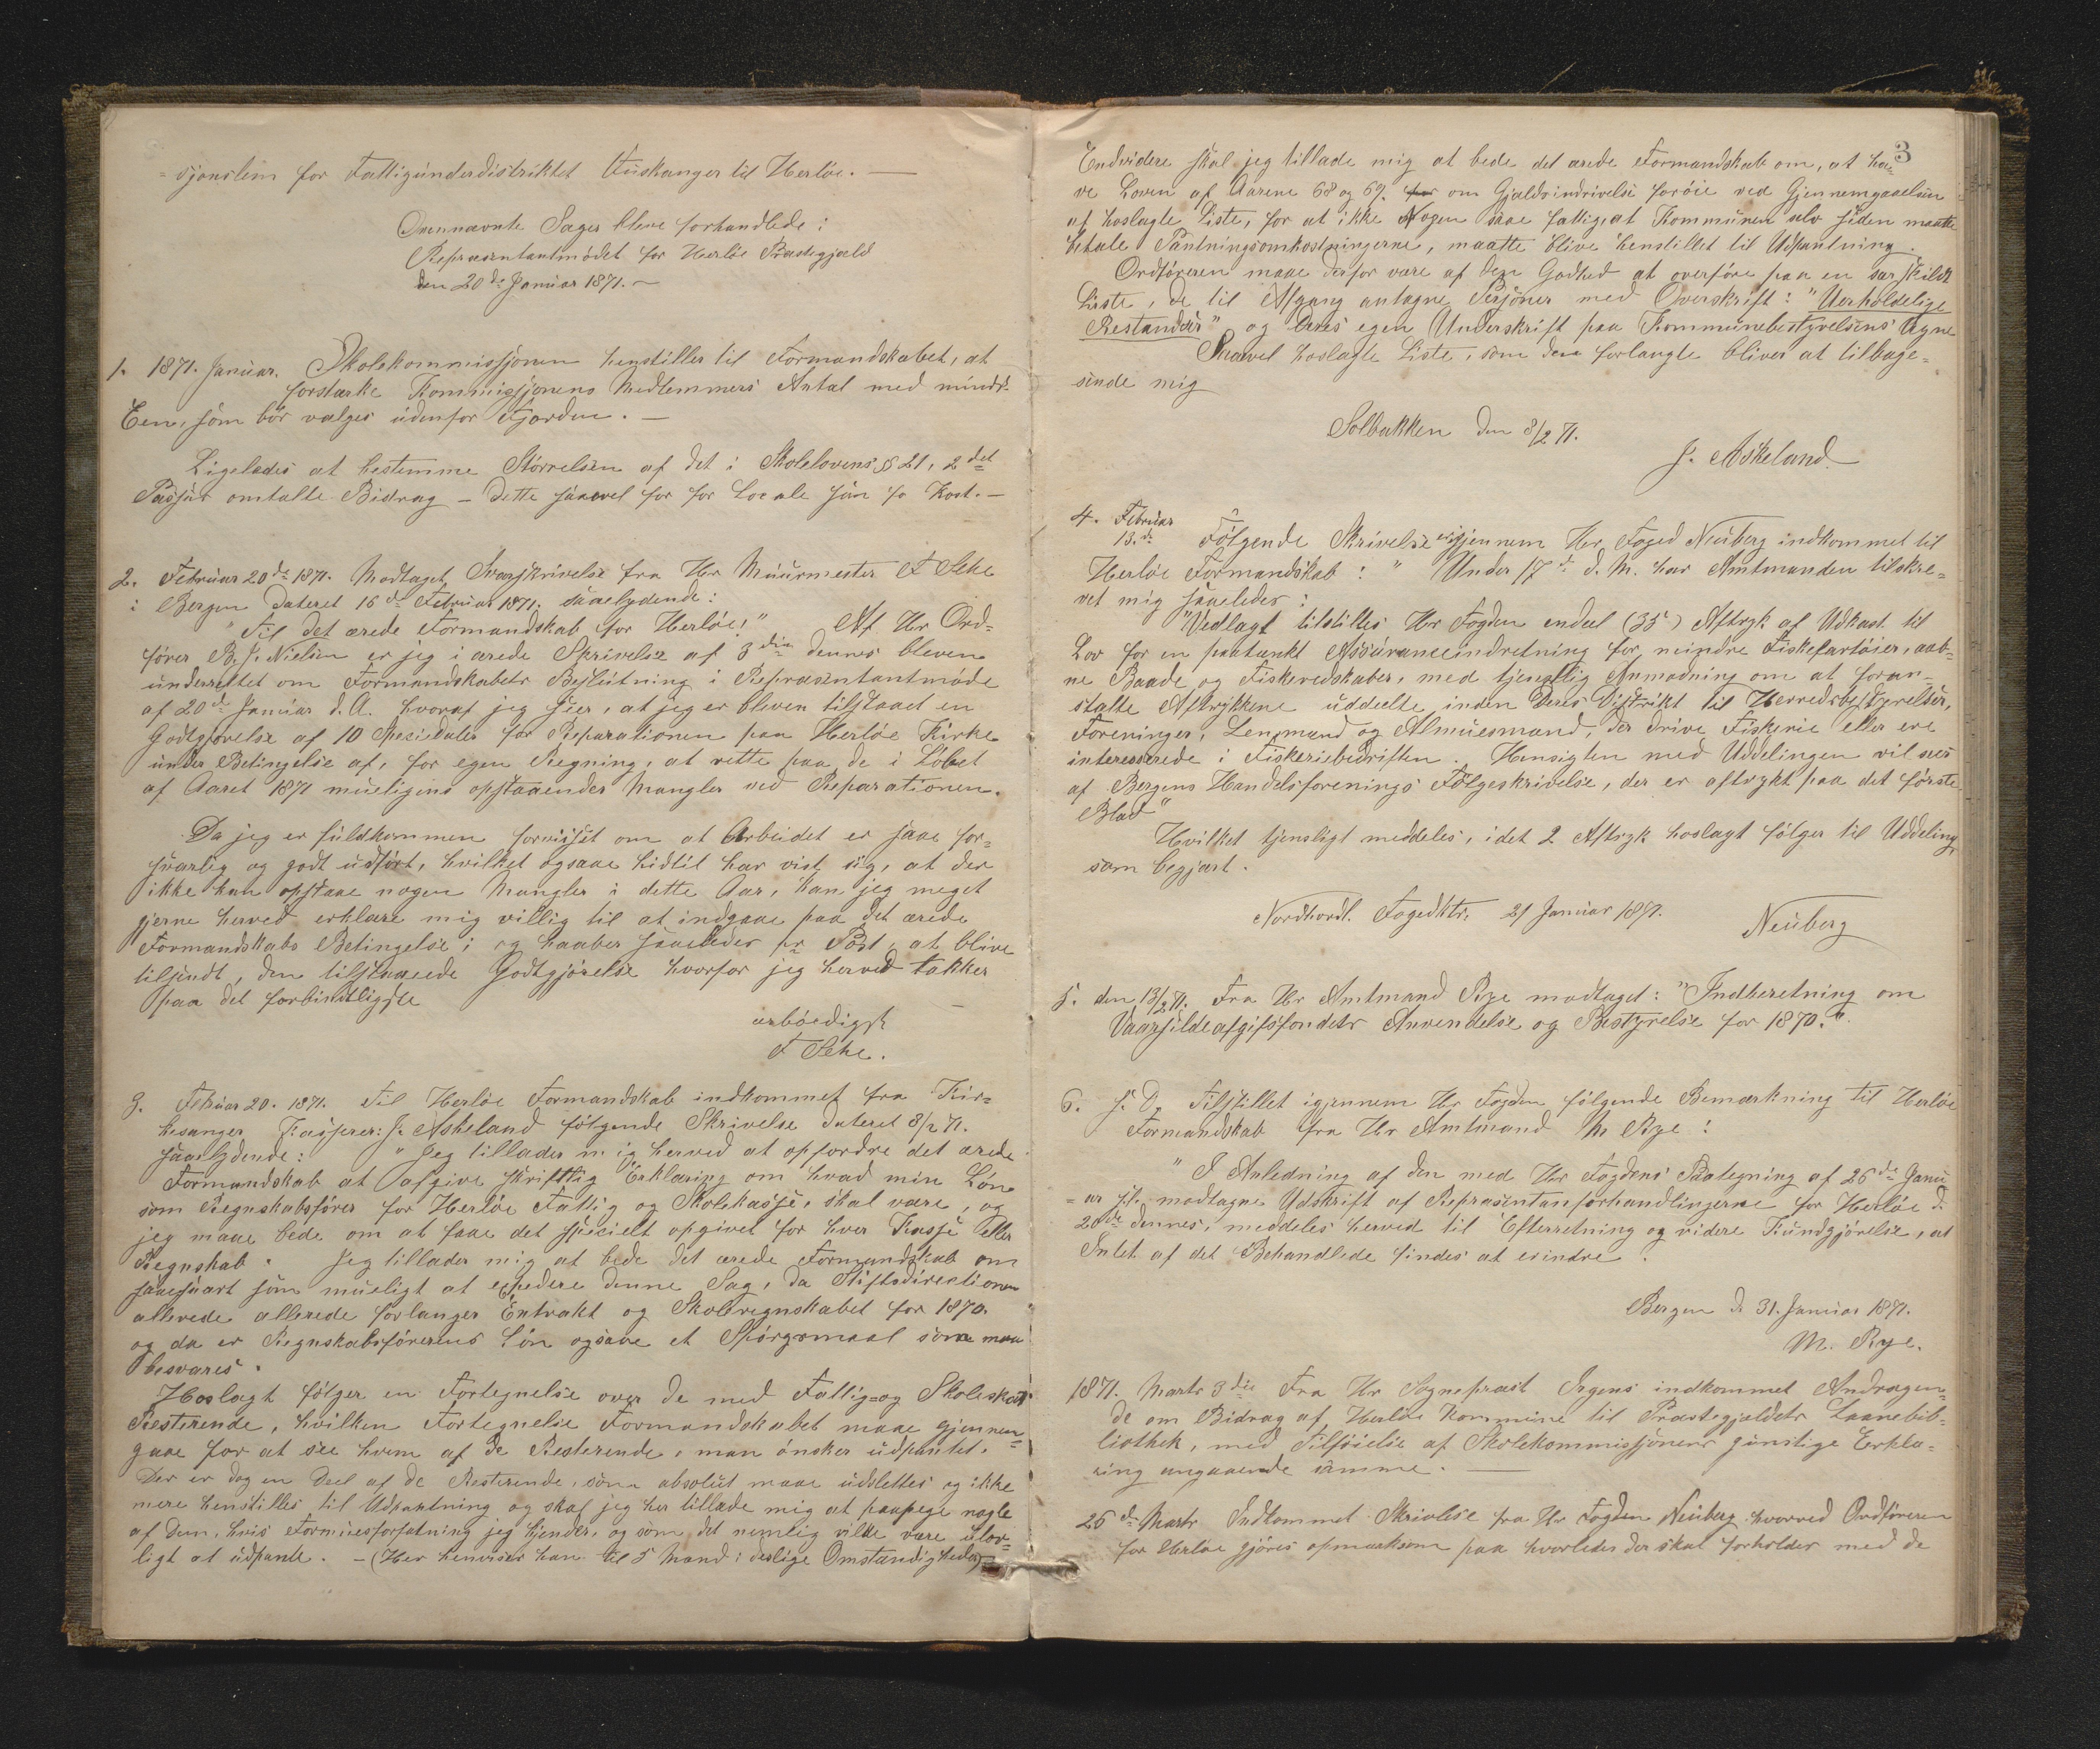 = sjonslem for Fattigunderdistriktet Fuskanger til Herlöe. —
Ovennævnte Sager bleve forhandlede i
Repræsentantmödet for Herlöe Præstegjæld
den 20de Januar 1871. —
1. 1871. Januar. Skolekommissjonen henstiller til Formandskabet, at
forstærke Kommissjonens Medlemmers Antal med mindst
Een, som bör vælges udenfor Fjorden. —
Ligeledes at bestemme Störrelsen af det i Skolelovens § 21, 2det
Passus omtalte Bidrag – dette saavel for for Locale som fo Kost. —
2. Februar 20de 1871. Modtaget Svarskrivelse fra Hr Muurmester F Sehe
i Bergen dateret 16de Februar 1871. saalydende:
"Til det ærede Formandskab for Herlöe!" Af Hr Ord=
förer B. J. Nielsen er jeg i ærede Skrivelse af 3die dennes bleven
underrettet om Formandskabets Beslutning i Repræsentantmöde
af 20de Januar d. A. hvoraf jeg seer, at jeg er bleven tilstaaet en
Godtgjörelse af 10 Spesidaler for Reparationen paa Herlöe Kirke
under Betingelse af, for egen Regning, at rette paa de i Löbet
af Aaret 1871 mueligens opstaaender Mangler ved Reparationen.
Da jeg er fuldkommen forvisset om at Arbeidet er saae for=
svarlig og godt udfört, hvilket ogsaae hidtil har vist sig, at der
ikke kan opstaae nogen Mangler i dette Aar, kan jeg meget
gjerne herved erklære mig villig til at indgaae paa det ærede
Formandskabs Betingelse; og haaber saaeledes pr Post, at blive
tilsendt, den tilstaaede Godtgjörelse hvorfor jeg herved takker
paa det forbindtligste —
ærböedigst
F Sehe.
3. Februar 20. 1871. Til Herlöe Formandskab indkommet fra Kir=
kesanger Kasserer: J. Askeland fölgende Skrivelse dateret 8/2 71.
saalydende: "Jeg tillader mig herved at opfordre det ærede
Formandskab at afgive skriftlig Erklæring om hvad min Lön
som Regnskabsförer for Herlöe Fattig og Skolekasse, skal være, og
jeg maae bede om at faae det specielt opgivet for hver Kasse eller
Regnskab. Jeg tillader mig at bede det ærede Formandskab om
saaesnart som mueligt at expedere denne Sag, da Stiftsdirectionen
allerede allerede forlanger Extrakt og Skoleregnskabet for 1870.
og da er Regnskabsförerens Lön ogsaae et Spörgsmaal som maa
besvares.
Hoslagt fölger en Fortegnelse over de med Fattig= og Skoleskat
Resterende, hvilken Fortegnelse Formandskabet maae gjennem=
gaae for at see hvem af de Resterende, man önsker udpantet.
Der er dog en Deel af de Resterende, som absolut maae udslettes og ikke
mere henstilles til Udpantning og skal jeg her tillade mig at paapege nogle
af dem, hvis Formuesforfatning jeg kjender, og som det nemlig vilde være ulov=
ligt at udpante. – (Her henviser han til 5 Mand i deslige Omstændigheder)
3
Endvidere skal jeg tillade mig at bede det ærede Formandskab om, at ha=
ve Loven af Aarene 68 og 69. for om Gjældsindrivelse foröie ved Gjennemgaaelsen
af hoslagte Liste, for at ikke Nogen saa fattig, at Kommunen selv siden maatte
betale Pantningsomkostningerne, maatte blive henstillet til Udpantning.
Ordföreren maae derfor være af den Godhed at overföre paa en særskildt
Liste, de til Afgang antagne Personer med Overskrift: "Uerholdelige
Restancer" og Deres egen Underskrift paa Kommunebestyrelsens Vegne
Saavel hoslagte Liste, som den forlangte bliver at tilbage=
sende mig
Solbakken den 8/2 71.
J. Askeland.
4. Februar
13.de Fölgende Skrivelse er igjennem Hr Foged Neuberg indkommet til
Herlöe Formandskab: " Under 17de d. M. har Amtmanden tilskre=
vet mig saaeledes:
"Vedlagt tilstilles Hr Fogden endeel (35) Aftryk af Udkast til
Lov for en paatænkt Assuranceindretning for mindre Fiskefartöier, aab=
ne Baade og Fiskeredskaber, med tjenstlig Anmodning om at foran=
stalte Aftrykkene uddeelte inden Deres Distrikt til Herredsbestyrelser,
Foreninger, Lensmænd og Almuesmænd, der drive Fiskerie eller ere
interesserede i Fiskeriebedriften. Hensigten med Uddelingen vil sees
af Bergens Handelsforenings Fölgeskrivelse, der er aftrykt paa det förste
Blad"
Hvilket tjensligt meddeles, idet 2 Aftryk hoslagt fölger til Uddeling,
som begjært.
Nordhordl. Fogedktr. 21 Januar 1871.
Neuberg
5. den 13/2 71. Fra Hr Amtmand Rye modtaget: "Indberetning om
Vaarsildeafgifsfondets Anvendelse og Bestyrelse for 1870."
6. s. D. Tilstillet igjennem Hr Fogden fölgende Bemærkning til Herlöe
Formandskab fra Hr Amtmand M Rye:
"I Anledning af den med Hr Fogdens Paategning af 26de Janu
= ar hr. modtagne Udskrift af Repræsentanforhandlingerne for Herlöe d.
20de dennes, meddeles herved til Efterretning og videre Kundgjörelse, at
Intet af det Behandlede findes at erindre.
Bergen d. 31. Januar 1871.
M. Rye.
1871. Marts 3die Fra Hr Sognepræst Irgens indkommet Andragen=
de om Bidrag af Herlöe Kommune til Præstegjældets Laanebib=
liothek, med Tilföielse af Skolekommissjonens gunstige Erklæ=
ring angaaende samme. —
26de Marts Indkommet Skrivelse fra Hr Fogden Neuberg hvorved Ordföreren
for Herlöe gjöres opmærksom paa hvorledes der skal forholdes med de